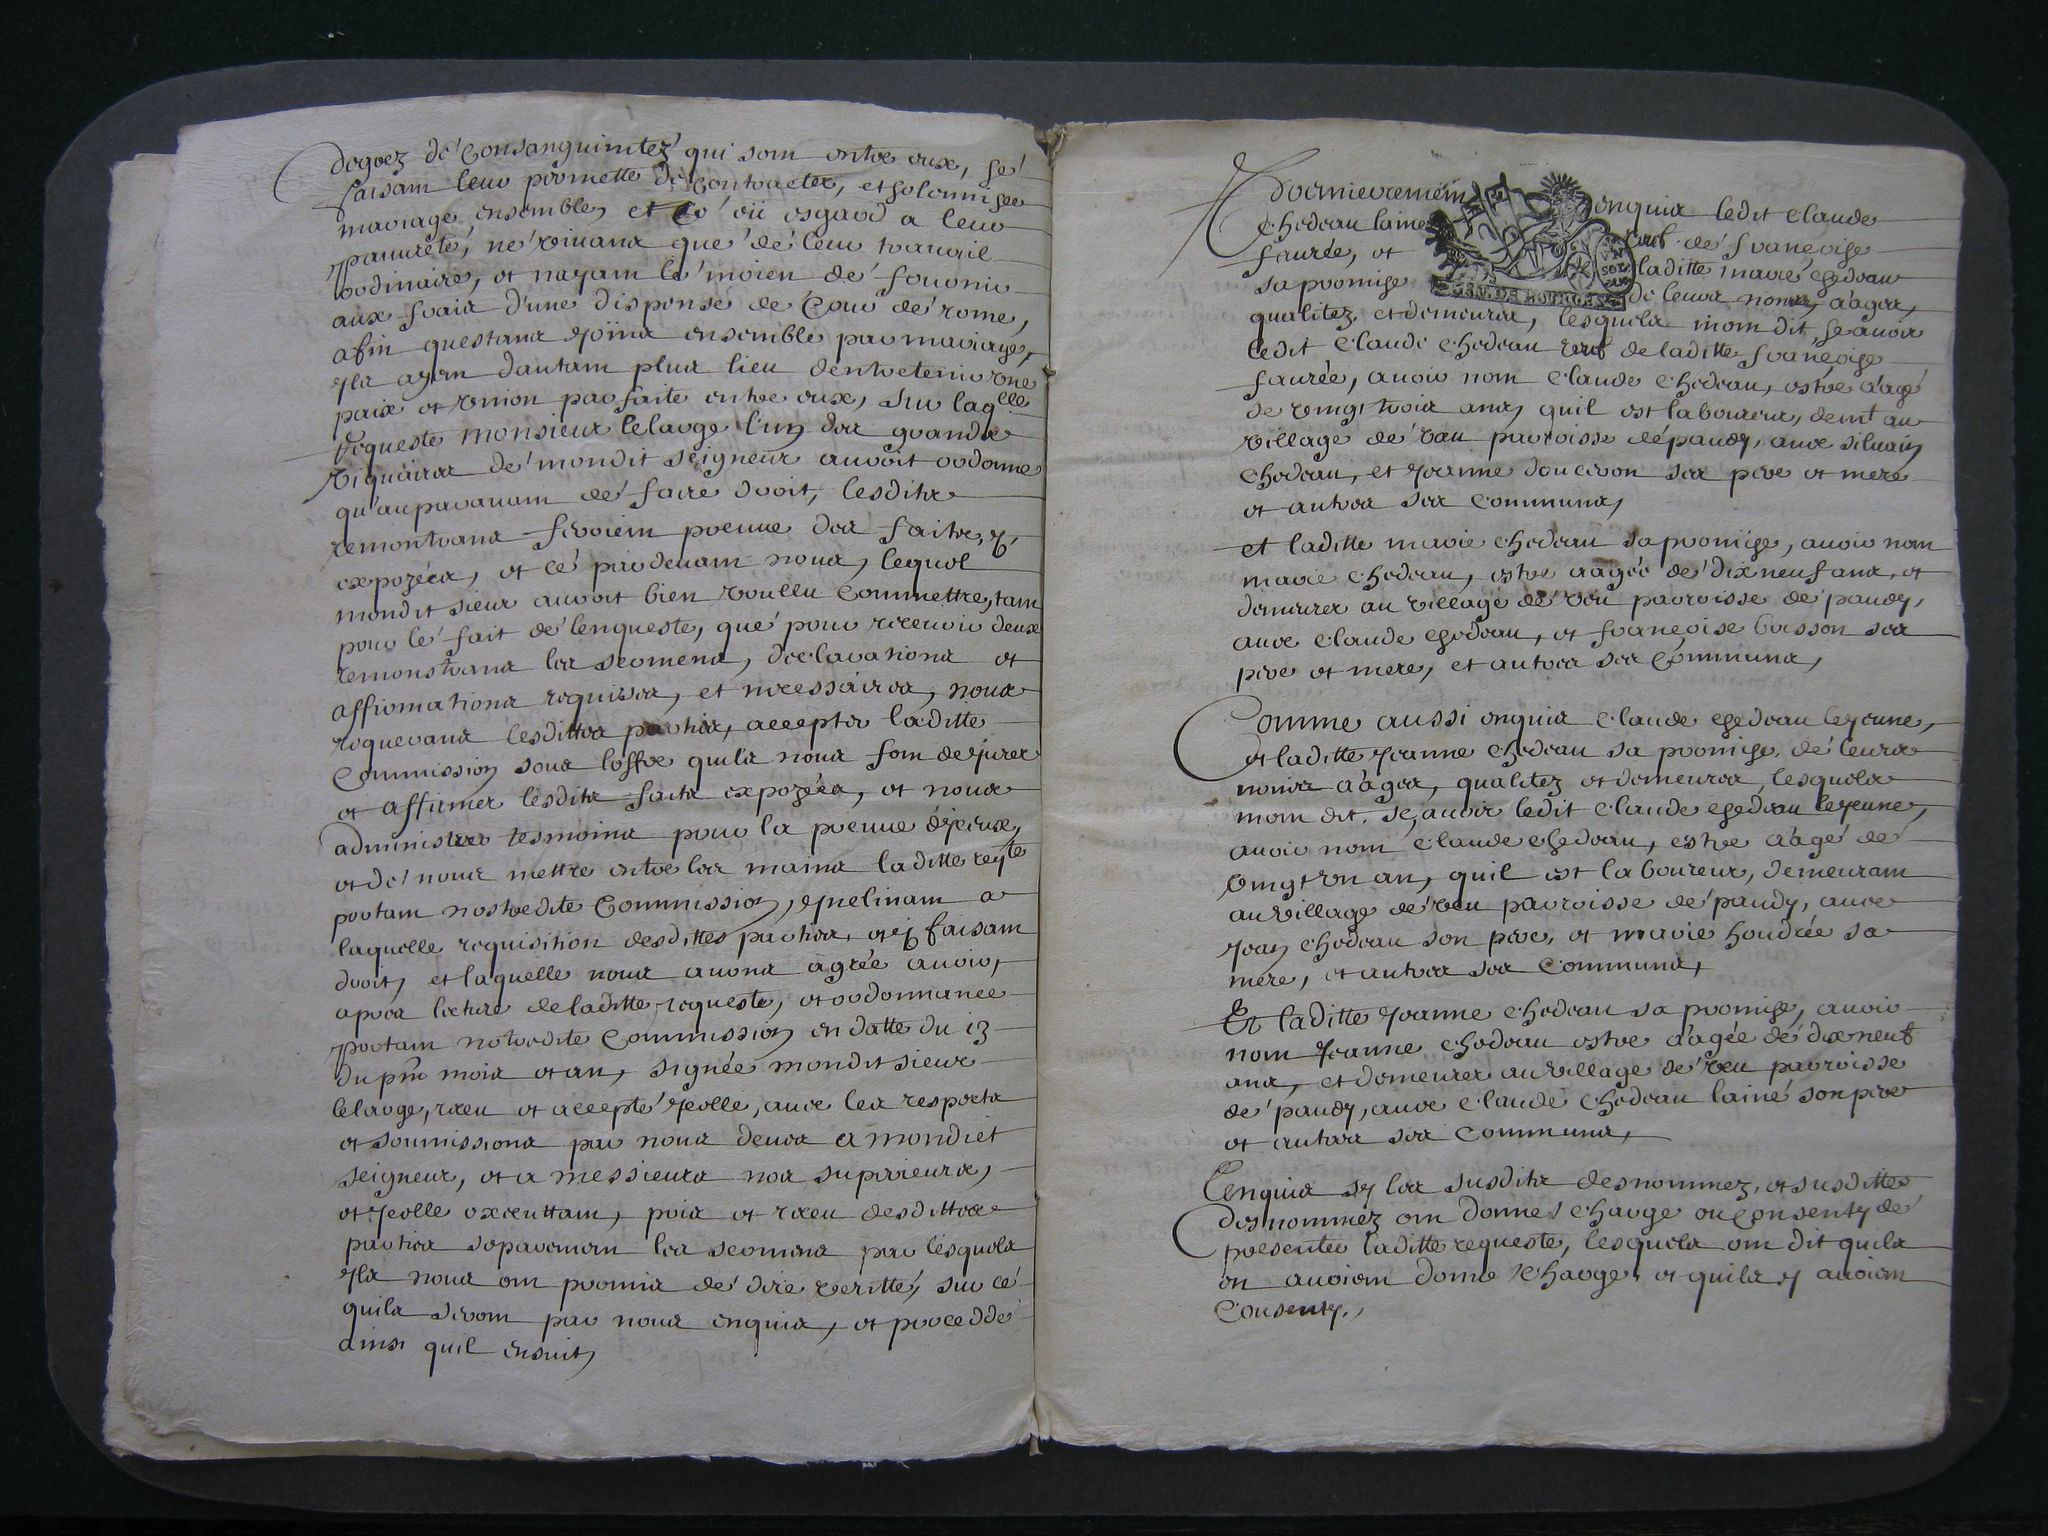 degrez de consanguinitez qui sont entre eux, se
faisant leur permettre de contracter, et solemniser
mariage ensemble, et ce eü esgard a leur
pauureté, ne viuans que de leur trauail
ordinaire, et nayant le moien de fournir
aux frais d'une dispense de Cour de rome,
afin questans joins ensemble par mariage,
Jls ayent dautant plus lieu dentretenir vne
paix et vnion parfaite entre eux, sur laqlle
Requeste monsieur lelarge l'un des grands
viquaires de mondit seigneur auroit ordonné
qu'auparauant de faire droit, lesdits
remontrans feroient preuue des faits, y,
exposéez, et ce pardeuant nous, lequel
mondit sieur auroit bien voullu Commettre, tant
pour le fait de lenqueste, que pour receuoir deux
remonstrans les sermens, declarations et
affirmations requises, et necessaires, nous
requerans lesdittes parties, accepter laditte
Commission sous loffre quils nous font de jurer
et affirmer lesdits faits exposéez, et nous
administrer tesmoins pour la preuue d'jceux,
et de nous mettre entre les mains laditte reqte
portant nostredite Commission, Jnclinant a
laquelle requisition desdittes parties, et y faisant
droit, et laquelle nous auons agréé auoir,
apres lecture de laditte requeste, et ordonnance
portant notredite Commission en datte du 13
du pnt mois et an, signée mondit sieur
lelarge, receu et accepté Jcelle, auec les respects
et soumissions par nous deues a mondict
seigneur, et a messieurs nos superieurs,
et Jcelle executtant, pris et receu desdittes
parties separement les sermens par lesquels
Jls nous ont promis de dire veritté, sur ce
quils seront par nous enquis, et proceddé
ainsi quil ensuit,
Premierement enquis ledit Claude
Chedeau laine veuf de françoise
faurée, et laditte marie chedeau
sa promise de leurs noms, aages,
GEN. DE BOURGES
VN SOL
qualitez, et demeures, lesquels mont dit, sçauoir
ledit Claude Chedeau veuf de laditte françoise
faurée, auoir nom Claude Chedeau, estre aagé
de vingt trois ans, quil est laboureur, demt au
village de veu parroisse de paudy, auec siluain
Chedeau, et Jeanne douceron ses pere et mere
et autres ses Communs,
et laditte marie Chedeau sa promise, auoir nom
marie Chedeau, estre aagée de dix neuf ans, et
demeurer au village de veu parroisse de paudy,
auec Claude chedeau, et françoise busson ses
pere et mere, et autres ses Communs,
Comme aussi enquis Claude chedeau lejeune,
et laditte Jeanne Chedeau sa promise, de leurs
noms aages, qualitez et demeures, lesquels
mont dit, sçauoir ledit Claude chedeau lejeune,
auoir nom Claude chedeau, estre aagé de
vingt vn an, quil est laboureur, demeurant
au village de veu parroisse de paudy, auec
Jean Chedeau son pere, et marie houdrée sa
mere, et autres ses Communs,
Et laditte Jeanne Chedeau sa promise, auoir
nom Jeanne Chedeau estre aagée de dix neuf
ans, et demeurer au village de veu parroisse
de paudy, auec Claude Chedeau lainé son pere
et autres ses Communs,
Enquis sy les susdits desnommez, et susdittes
desnommez ont donné charge ou Consenty de
presenter laditte requeste, lesquels ont dit quils
en auoient donné charge, et quils y auoient
Consenty.,